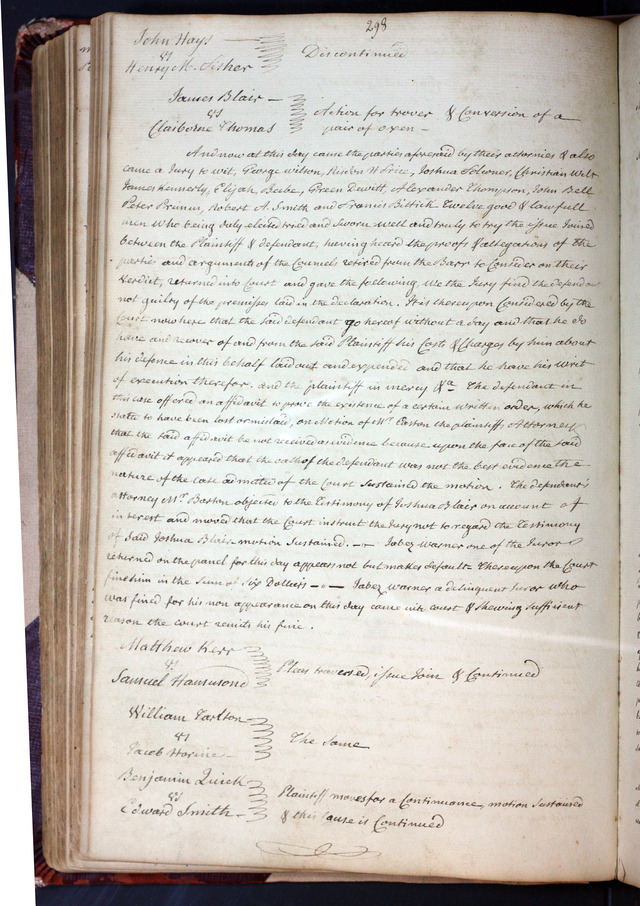 298
John Hays
vs
Henry M. Fisher
Discontinued
James Blair
vs
Claiborne Thomas
Action for trover & Conversion of a
pair of oxen
And now at this day came the parties aforesaid by their attornies & also
came a Jury to wit, George Wilson, H Price, Joshua Christian Wilt
James Kennerly, Elijah Beebe, Green Dewitt, Alexander Thompson, John Bell
Peter Primm, Robert A. Smith and Francis Bittick Twelve good & lawfull
men Who being duly elected tried and Sworn well and truly to try the issue Joined
between the Plaintiff & defendant, having heard the proofs & allegations of the
parties and arguments of the Councils retired from the Barr to Consider on their
Verdict, returned into Court and gave the following We the Jury find the defendant
not guilty of the premises laid in the declaration. It is thereupon Considered by the
Court now here that the said defendant go hereof without a day and that he do
have and recover of and from the said Plaintiff his Costs & Charges by him about
his defence in this behalf laid out and expended and that he have his writ
of execution therefor, and the plaintiff in mercy &a. The defendant in
this case offered an affidavit to prove the existence of a certain Written order, which he
states to have been lost or mislaid, on Motion of Mr. Easton the plaintiffs Attorney
that the said affidavit be not received as evidence because upon the face of the Said
affidavit it appeared that the oath of the defendant was not the best evidence the
nature of the Case admitted of the Court Sustained the motion. The defendants
attorney Mr. Barton objected to the Testimony of Joshua Blair on account of
interest and moved that the Court instruct the Jury not to regard the Testimony
of Said Joshua Blair motion Sustained. Jabez Warner one of the Jurors
returned on the pannel for this day appears not but makes default Thereupon the Court
fine him in the Sum of Six Dollars Jabez Warner a delinquent Juror who
was fined for his non appearance on this day came into court & Shewing Sufficient
reason the court remits his fine.
Matthew Kerr
vs
Samuel Hammond
Pleas traversed, issue Join & Continued
William Tarlton
vs
Jacob Horine
The Same
Benjamin Quick
vs
Edward Smith
Plaintiff moves for a Continuance, motion Sustained
& this Cause is Continued